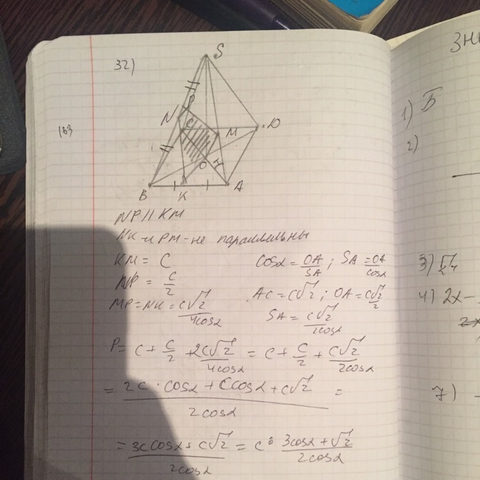 32)
S
N P
C D
M
H
O
B K A
NP || KM
NK и PM - не параллельны
KM = C
NP = C/2
MP = NK = C√2/4cosα
cosα = OA/SA ; SA = OA/cosα
AC = C√2 ; OA = C√2/2
SA = C√2/2cosα
P = C + C/2 + 2C√2/4cosα = C + C/2 + C√2/2cosα
= 2C · cosα + Ccosα + C√2 / 2cosα =
= 3Ccosα + C√2 / 2cosα = C · 3cosα + √2 / 2cosα
1) Б
2)
4) 2x -
7)